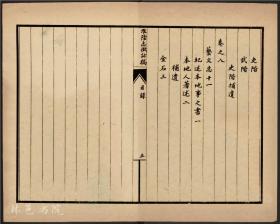 史階
史階補遺
武階
卷之八
藝文志十一
紀述本地事之書一
本地人著述二
補遺
金石三
目錄
五